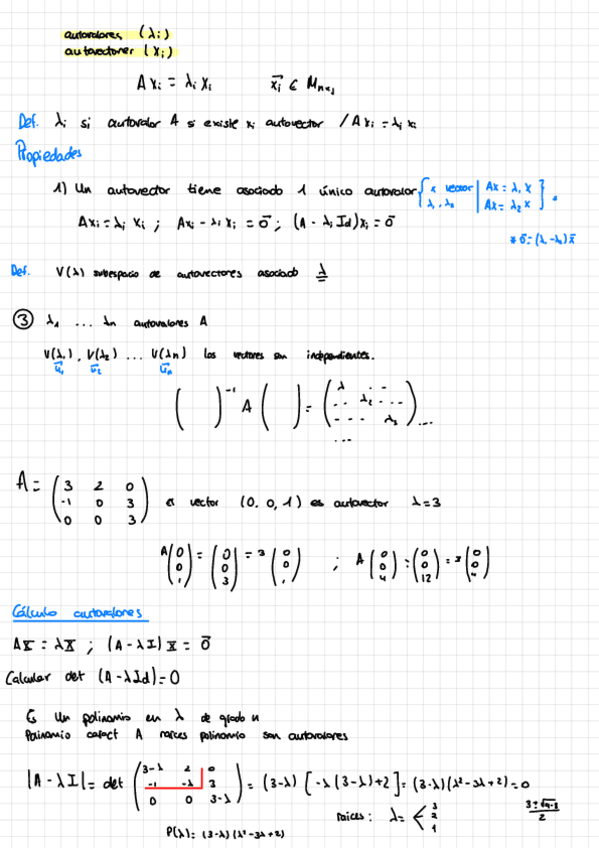 autovalores (λi)
autovectores (Xi)
A Xi = λi Xi    x⃗i ∈ Mnx1
Def. λi si autovalor A si existe xi autovector / A xi = λi xi
Propiedades
1) Un autovector tiene asociado 1 único autovalor { x vector λ1, λ2 | Ax = λ1 x Ax = λ2 x } *
Axi = λi xi ; Axi - λi xi = 0⃗ ; (A - λi Id) xi = 0⃗
* 0⃗ = (λ1 - λ2) x⃗
Def. V(λ) subespacio de autovectores asociado λ
③ λ1 ... λn autovalores A
V(λ1), V(λ2) ... V(λn) los vectores son independientes.
u⃗1 u⃗2 u⃗n
( )⁻¹ A ( ) = ( λ . . -
. . λ2 . . .
- - - λ3 ) ...
...
A = ( 3 2 0
-1 0 3
0 0 3 ) el vector (0, 0, 1) es autovector λ=3
A (0 0 1) = (0 0 3) = 3 (0 0 1) ; A (0 0 4) = (0 0 12) = 3 (0 0 4)
Cálculo autovalores
AX = λX ; (A - λI) X = 0⃗
Calcular det (A - λId) = 0
Es un polinomio en λ de grado n
Polinomio caract A raíces polinomio son autovalores
|A - λI| = det ( 3-λ 2 0
-1 -λ 3
0 0 3-λ ) = (3-λ) [-λ(3-λ)+2] = (3-λ)(λ²-3λ+2) = 0
raíces : λ = < 3 2 1
P(λ) = (3-λ)(λ²-3λ+2)
3±√9-8
2